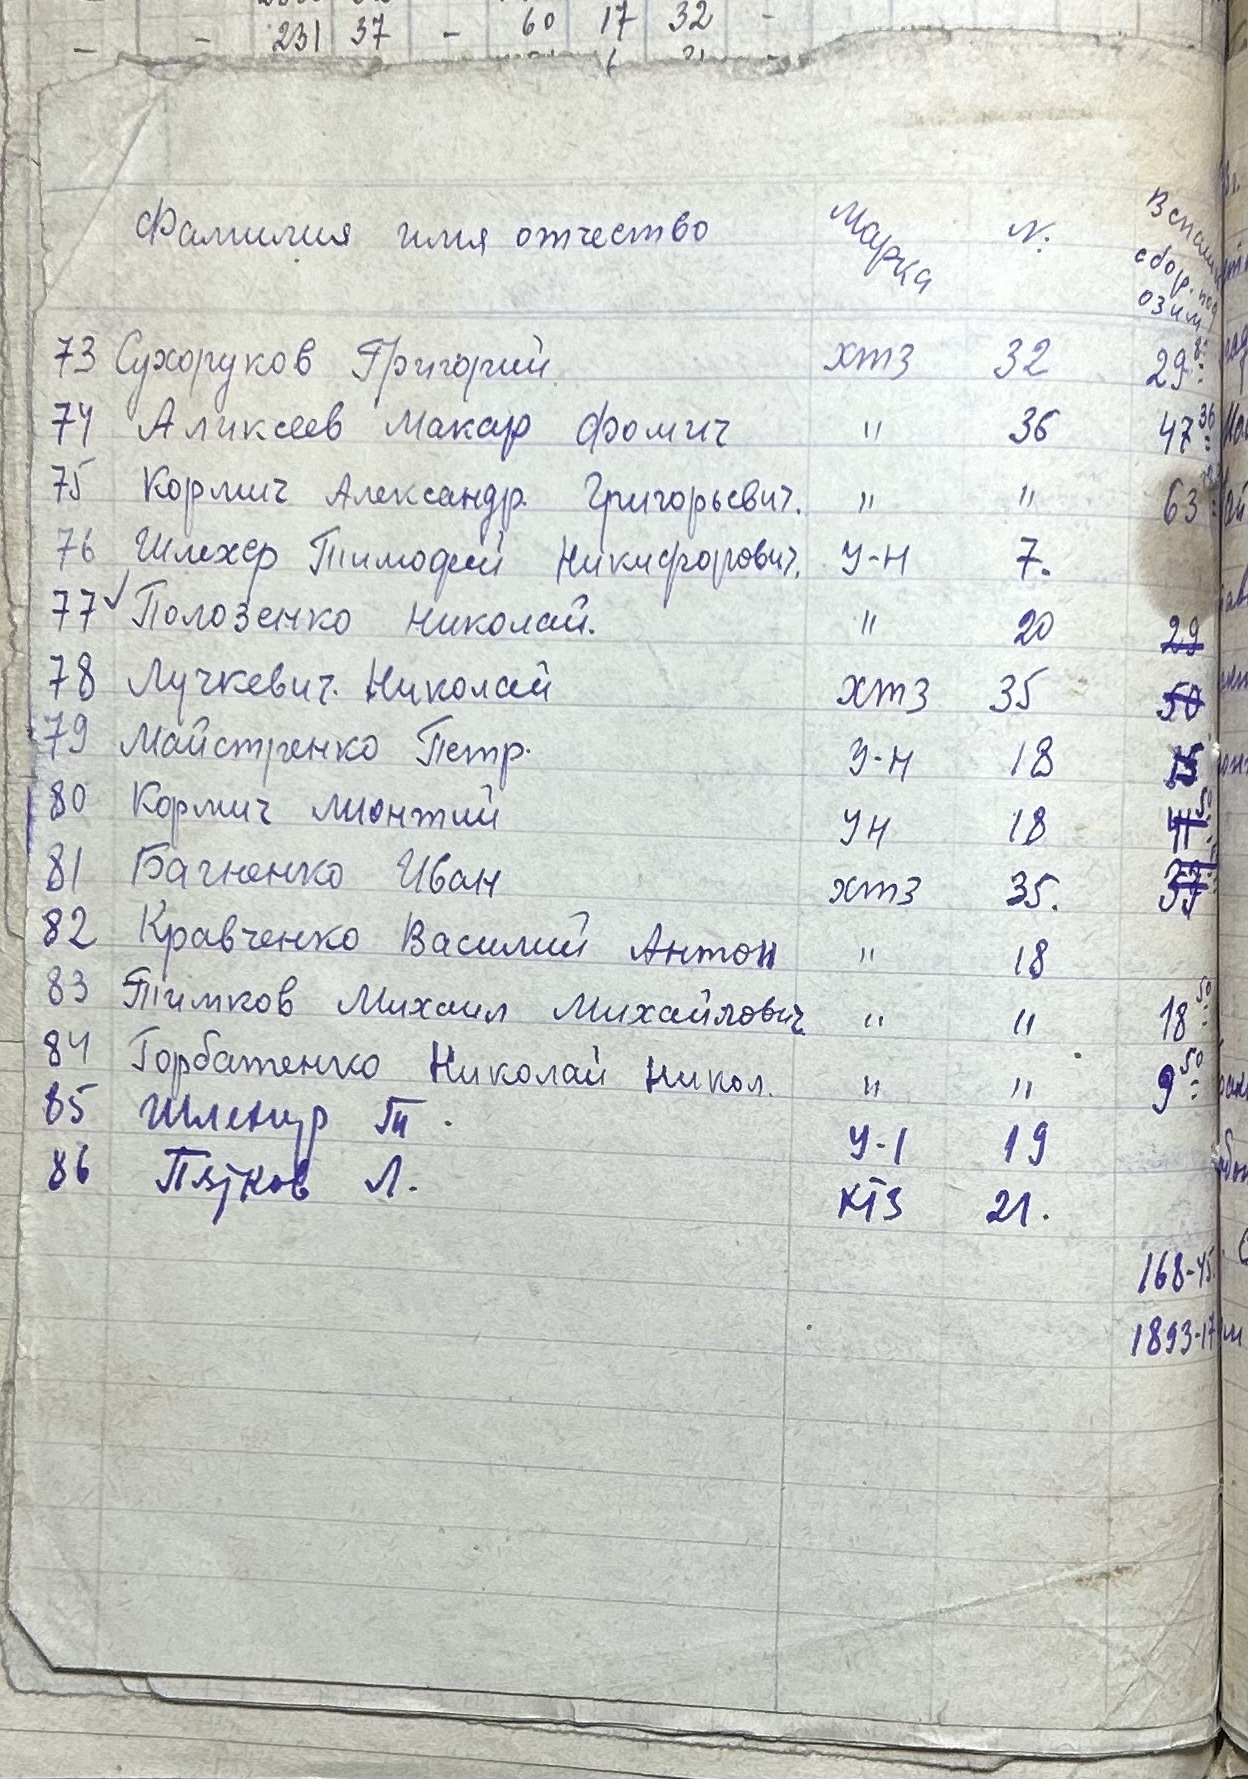 231 37 - 60 17 32 -
Фамилия имя отчество Марка №: Вспашк сбор. под озим
73 Сухоруков Григорий. ХТЗ 32 29
74 Аликсеев Макар Фомич " 36 47 36
75 Кормич Александр. Григорьевич. " " 63
76 Шлихер Тимофей Никифорович. У-Н 7.
77 ✓ Полозенко Николай. " 20 29
78 Лучкевич. Николай ХТЗ 35 50
79 Майстренко Петр. У-Н 18
80 Кормич Мионтий УН 18 41 50
81 Багненко Иван ХТЗ 35.
82 Кравченко Василий Антон " 18
83 Тимков Михаил Михайлович " " 18 50
84 Горбатенко Николай Никол. " " 9 50
85 У-1 19
86 Л. ХТЗ 21.
168-45
1893-17